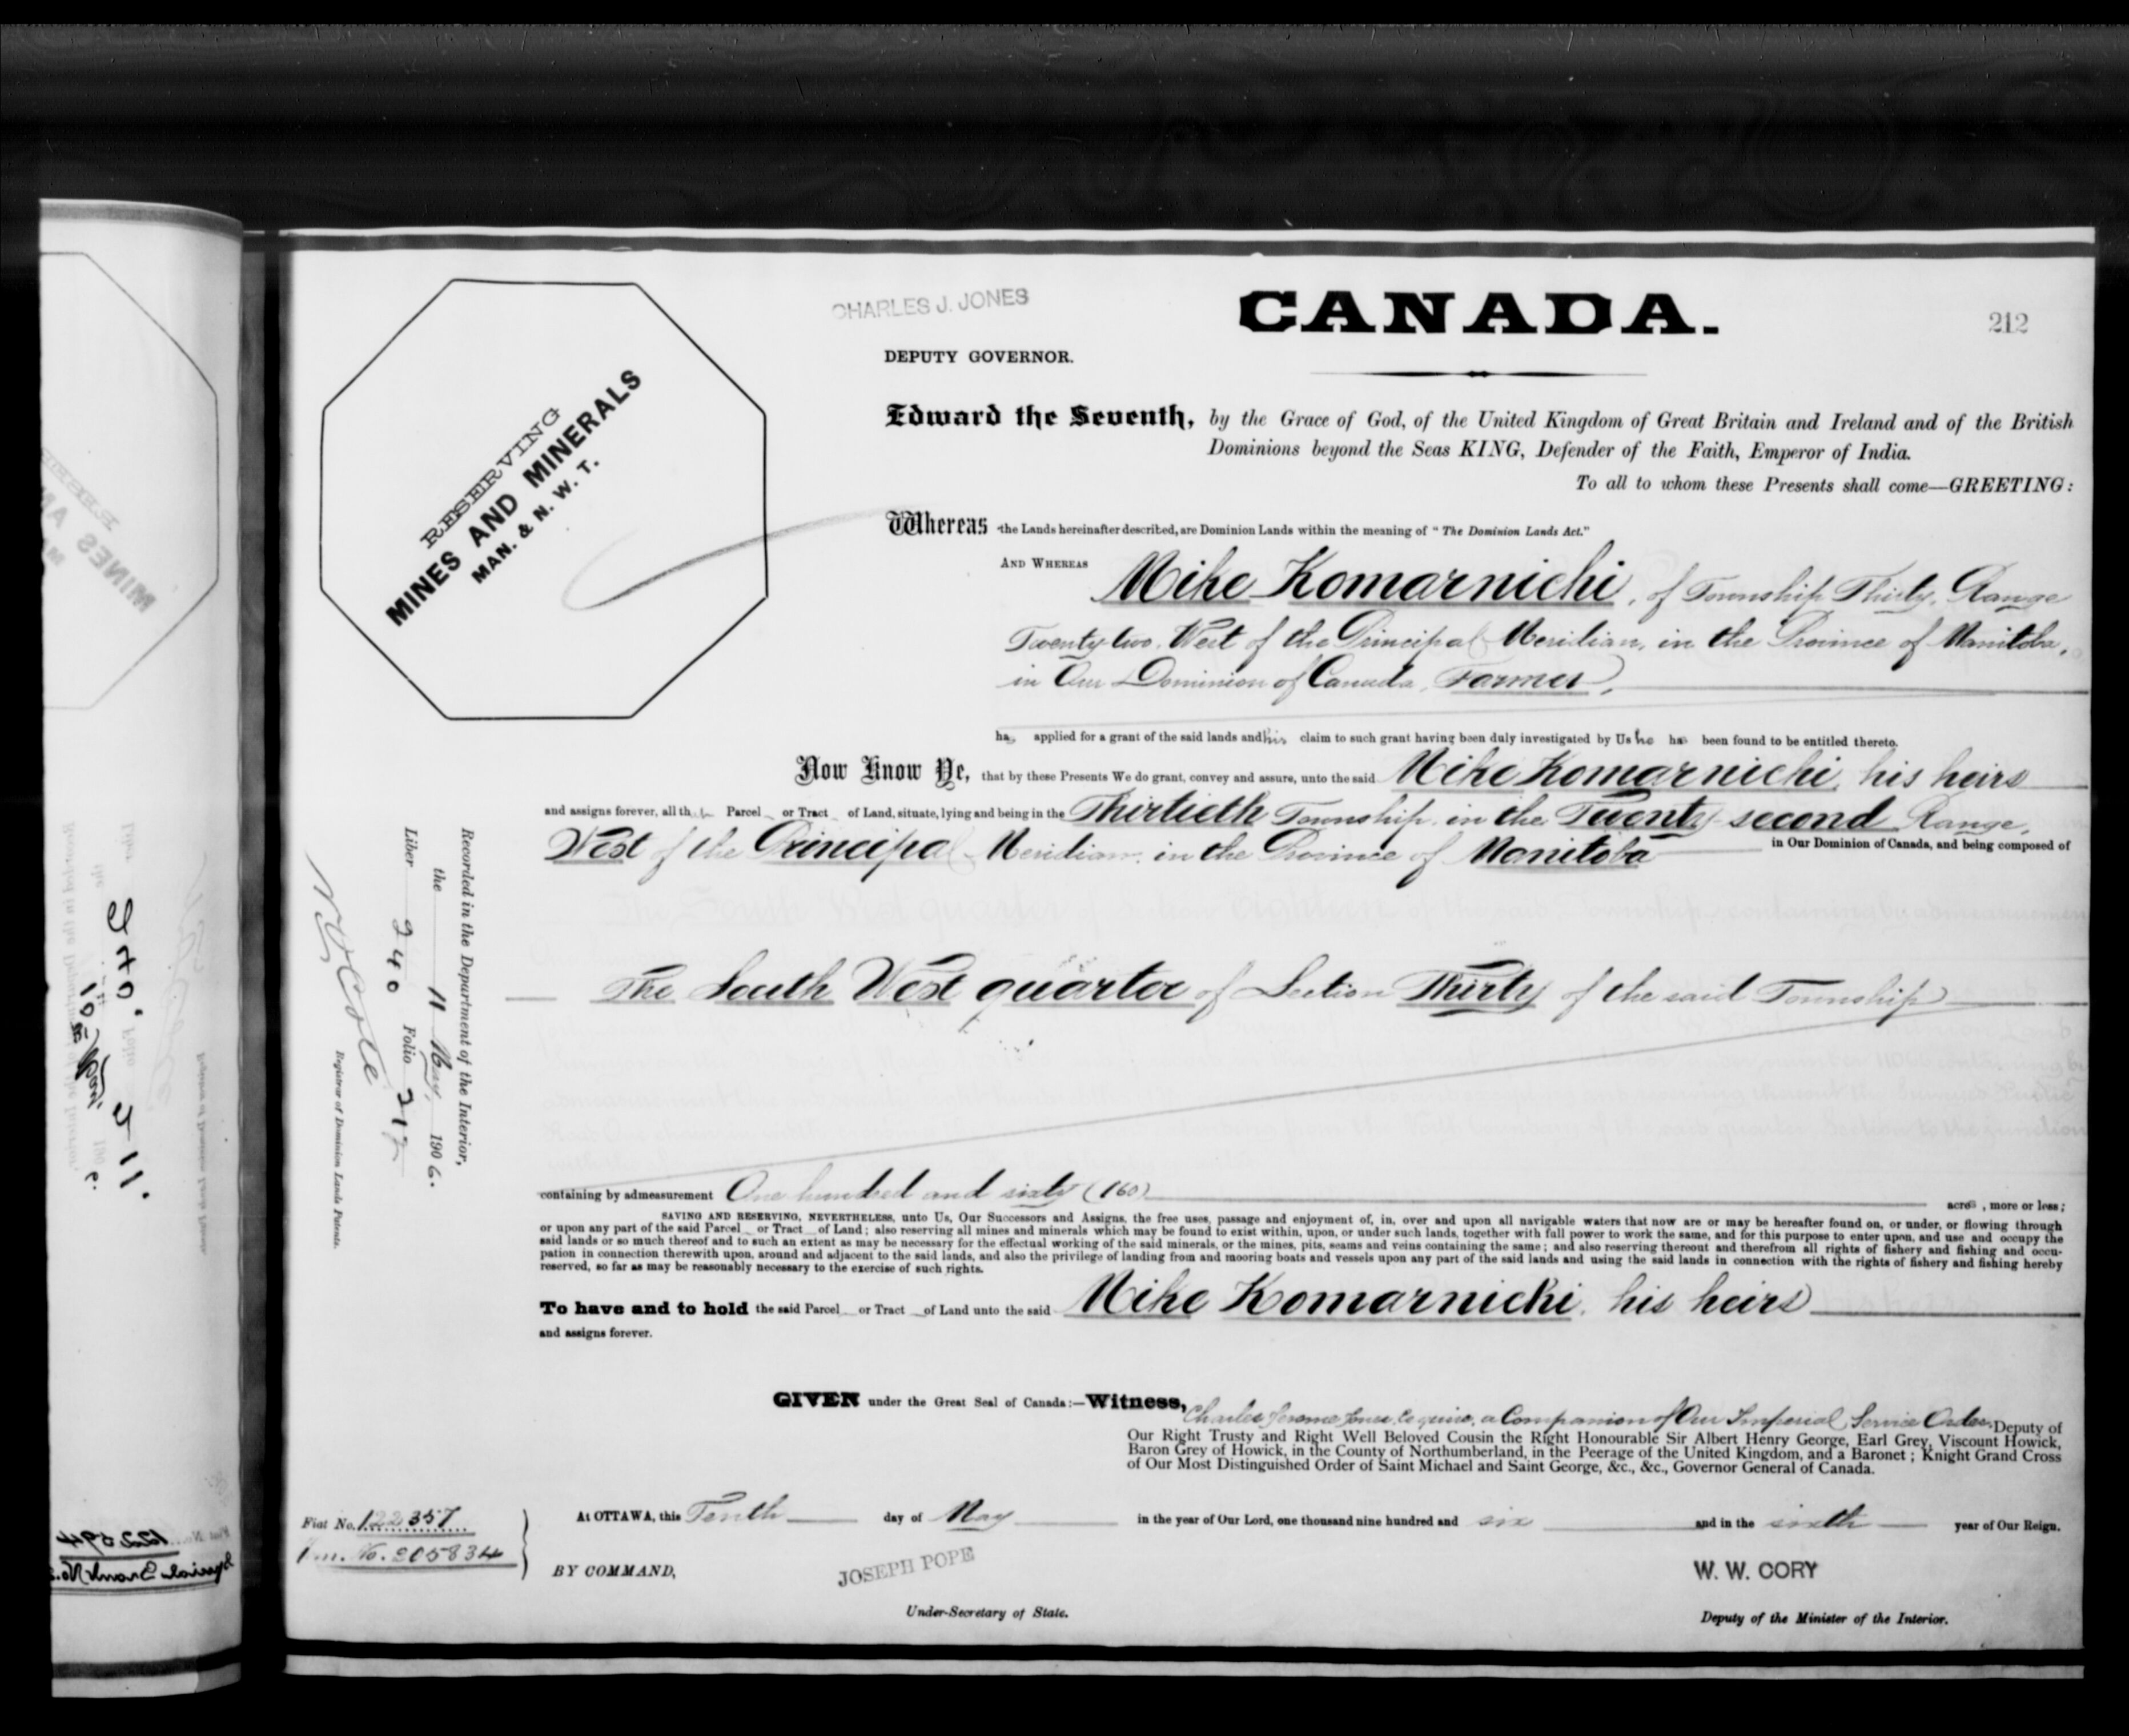 CHARLES J. JONES
CANADA.
212
DEPUTY GOVERNOR.
RESERVING
MINES AND MINERALS
MAN. & N. W. T.
Edward the Seventh, by the Grace of God, of the United Kingdom of Great Britain and Ireland and of the British
Dominions beyond the Seas KING, Defender of the Faith, Emperor of India.
To all to whom these Presents shall come—GREETING:
Whereas the Lands hereinafter described, are Dominion Lands within the meaning of "The Dominion Lands Act."
AND WHEREAS Mike Komarnicki, of Township Thirty, Range
Twenty-two, West of the Principal Meridian, in the Province of Manitoba,
in Our Dominion of Canada, Farmer,
has applied for a grant of the said lands and his claim to such grant having been duly investigated by Us he has been found to be entitled thereto.
Now Know Ye, that by these Presents We do grant, convey and assure, unto the said Mike Komarnicki, his heirs
and assigns forever, all th Parcel or Tract of Land, situate, lying and being in the Thirtieth Township, in the Twenty-second Range,
West of the Principal Meridian, in the Province of Manitoba in Our Dominion of Canada, and being composed of
The South West quarter of Section Thirty of the said Township
containing by admeasurement One hundred and sixty (160) acres, more or less;
SAVING AND RESERVING, NEVERTHELESS, unto Us, Our Successors and Assigns, the free uses, passage and enjoyment of, in, over and upon all navigable waters that now are or may be hereafter found on, or under, or flowing through
or upon any part of the said Parcel or Tract of Land; also reserving all mines and minerals which may be found to exist within, upon, or under such lands, together with full power to work the same, and for this purpose to enter upon, and use and occupy the
said lands or so much thereof and to such an extent as may be necessary for the effectual working of the said minerals, or the mines, pits, seams and veins containing the same; and also reserving thereout and therefrom all rights of fishery and fishing and occu-
pation in connection therewith upon, around and adjacent to the said lands, and also the privilege of landing from and mooring boats and vessels upon any part of the said lands and using the said lands in connection with the rights of fishery and fishing hereby
reserved, so far as may be reasonably necessary to the exercise of such rights.
To have and to hold the said Parcel or Tract of Land unto the said Mike Komarnicki, his heirs
and assigns forever.
GIVEN under the Great Seal of Canada:—Witness, Charles Jerome Jones, Esquire, a Companion of Our Imperial Service Order, Deputy of
Our Right Trusty and Right Well Beloved Cousin the Right Honourable Sir Albert Henry George, Earl Grey, Viscount Howick,
Baron Grey of Howick, in the County of Northumberland, in the Peerage of the United Kingdom, and a Baronet; Knight Grand Cross
of Our Most Distinguished Order of Saint Michael and Saint George, &c., &c., Governor General of Canada.
At OTTAWA, this Tenth day of May in the year of Our Lord, one thousand nine hundred and six and in the sixth year of Our Reign.
BY COMMAND,
JOSEPH POPE
Under-Secretary of State.
W. W. CORY
Deputy of the Minister of the Interior.
Fiat No. 122357
No. 805834
Recorded in the Department of the Interior,
the 11 May, 1906.
Liber 240 Folio 212
N O Cote
Registrar of Dominion Lands Patents.